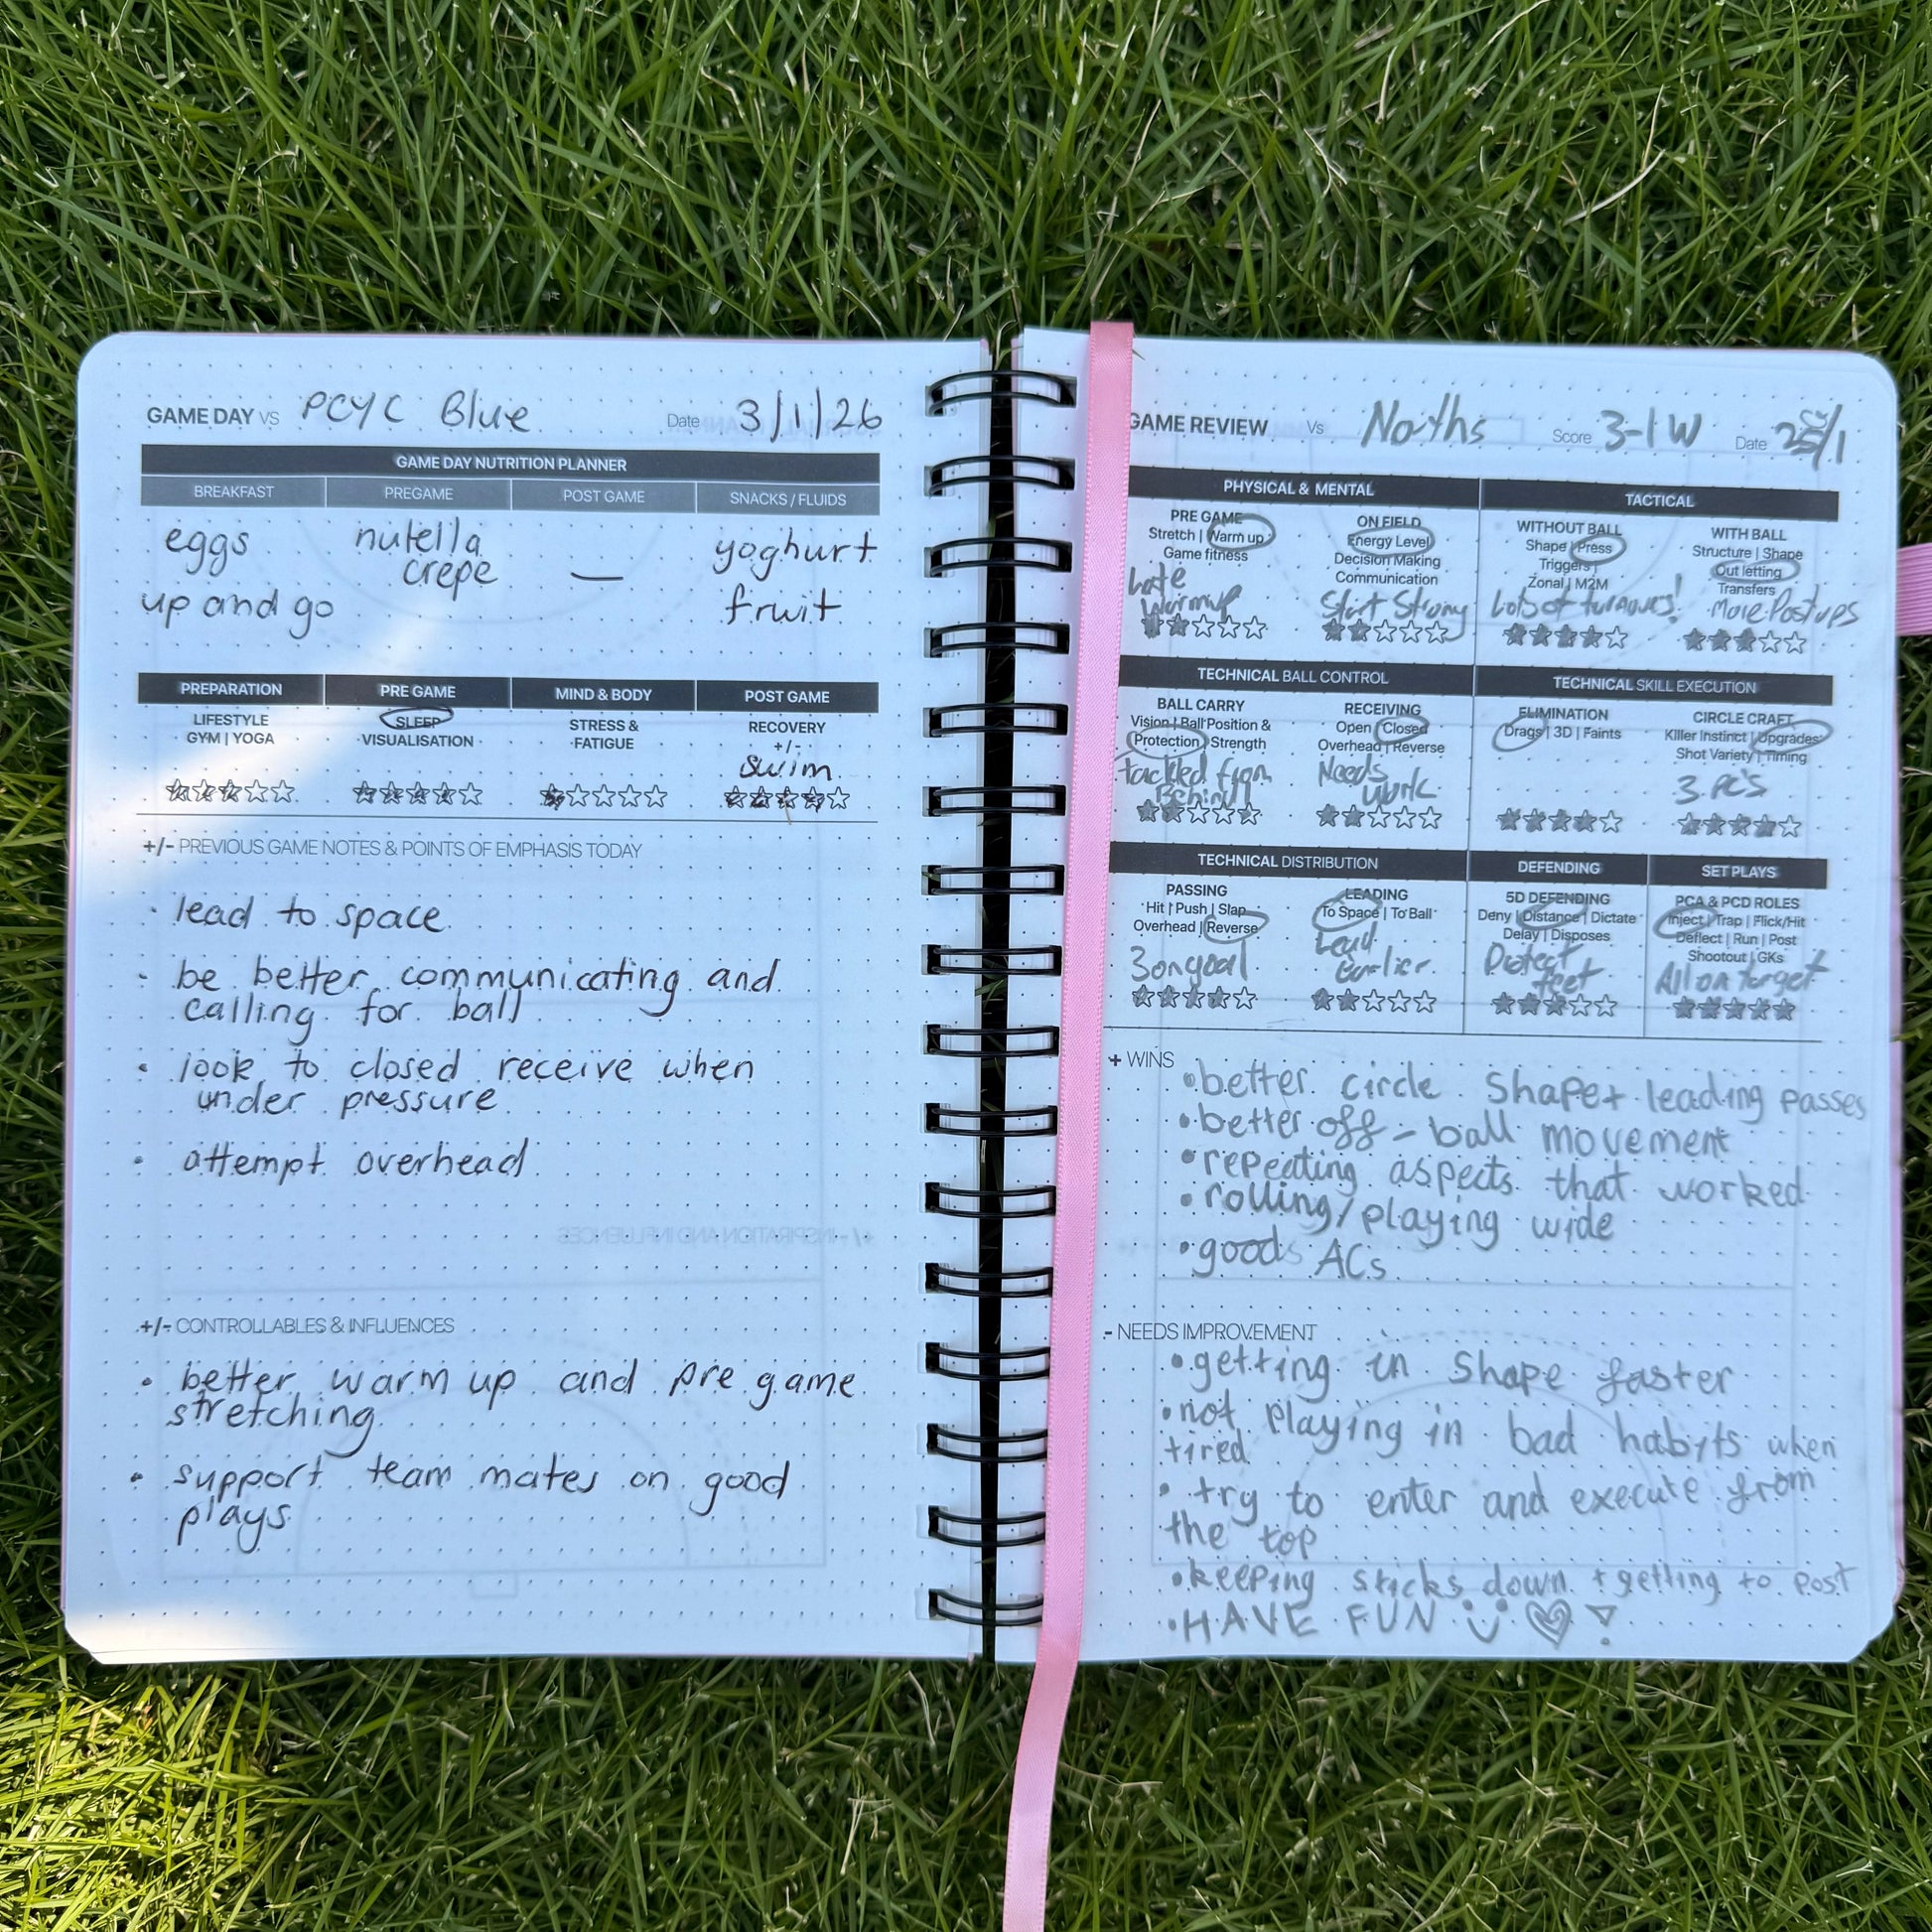 GAME DAY VS PCYC Blue Date 3/1/26
GAME DAY NUTRITION PLANNER
BREAKFAST PREGAME POST GAME SNACKS / FLUIDS
eggs nutella — yoghurt
crepe
up and go fruit
PREPARATION PRE GAME MIND & BODY POST GAME
LIFESTYLE SLEEP STRESS & RECOVERY
GYM | YOGA VISUALISATION FATIGUE +/-
swim
+/- PREVIOUS GAME NOTES & POINTS OF EMPHASIS TODAY
• lead to space
• be better communicating and
calling for ball
• look to closed receive when
under pressure
• attempt overhead
+/- CONTROLLABLES & INFLUENCES
• better warm up and pre game
stretching
• support team mates on good
plays
GAME REVIEW Vs Norths Score 3-1 W Date
PHYSICAL & MENTAL TACTICAL
PRE GAME ON FIELD WITHOUT BALL WITH BALL
Stretch | Warm up Energy Level Shape | Press Structure | Shape
Game fitness Decision Making Triggers | Out letting
Communication Zonal | M2M Transfers
Late
Warmup Start Strong Lots of More Post ups
TECHNICAL BALL CONTROL TECHNICAL SKILL EXECUTION
BALL CARRY RECEIVING ELIMINATION CIRCLE CRAFT
Vision | Ball Position & Open | Closed Drags | 3D | Faints Killer Instinct | Upgrades
Protection | Strength Overhead | Reverse Shot Variety | Timing
tackled from Needs 3 PC's
Behind work
TECHNICAL DISTRIBUTION DEFENDING SET PLAYS
PASSING LEADING 5D DEFENDING PCA & PCD ROLES
Hit | Push | Slap To Space | To Ball Deny | Distance | Dictate Inject | Trap | Flick/Hit
Overhead | Reverse Delay | Disposes Deflect | Run | Post
Shootout | GKs
3 on goal Lead Protect All on target
Earlier feet
+ WINS
• better circle shape + leading passes
• better off-ball movement
• repeating aspects that worked
• rolling/playing wide
• goods ACs
- NEEDS IMPROVEMENT
• getting in shape faster
• not playing in bad habits when
tired
• try to enter and execute from
the top
• keeping sticks down + getting to post
• HAVE FUN